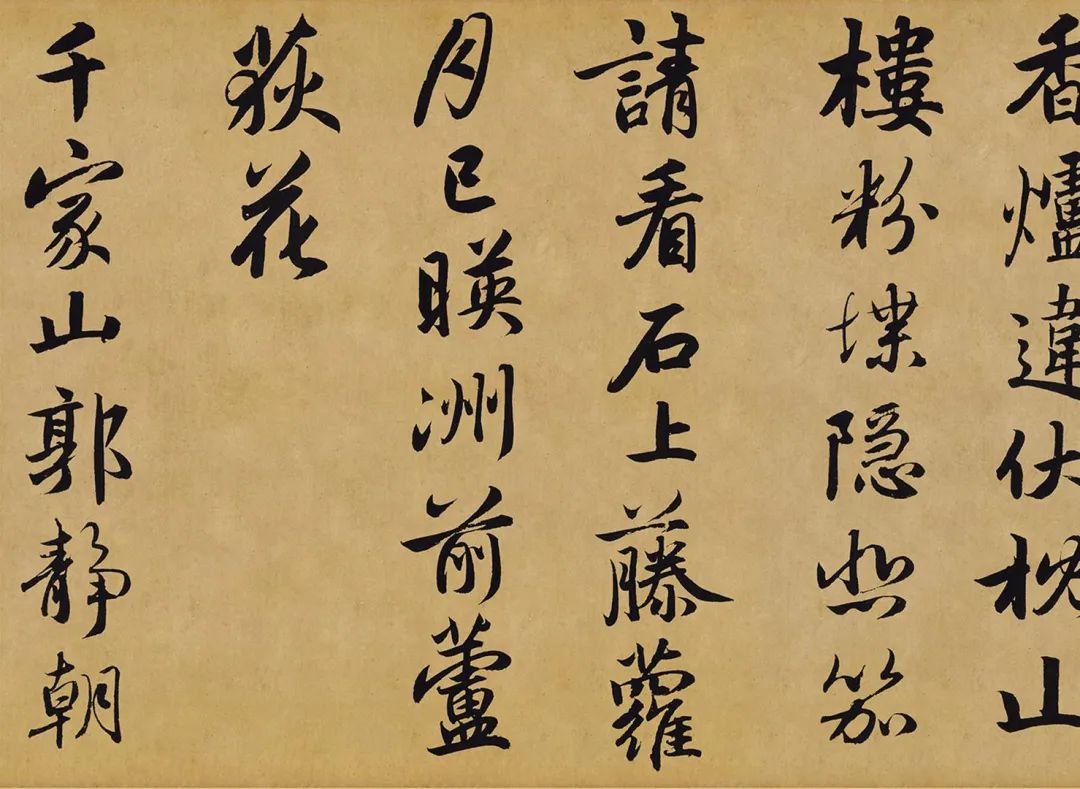 香爐違伏枕山
樓粉堞隐悲笳
請看石上藤蘿
月已暎洲前蘆
荻花
千家山郭靜朝